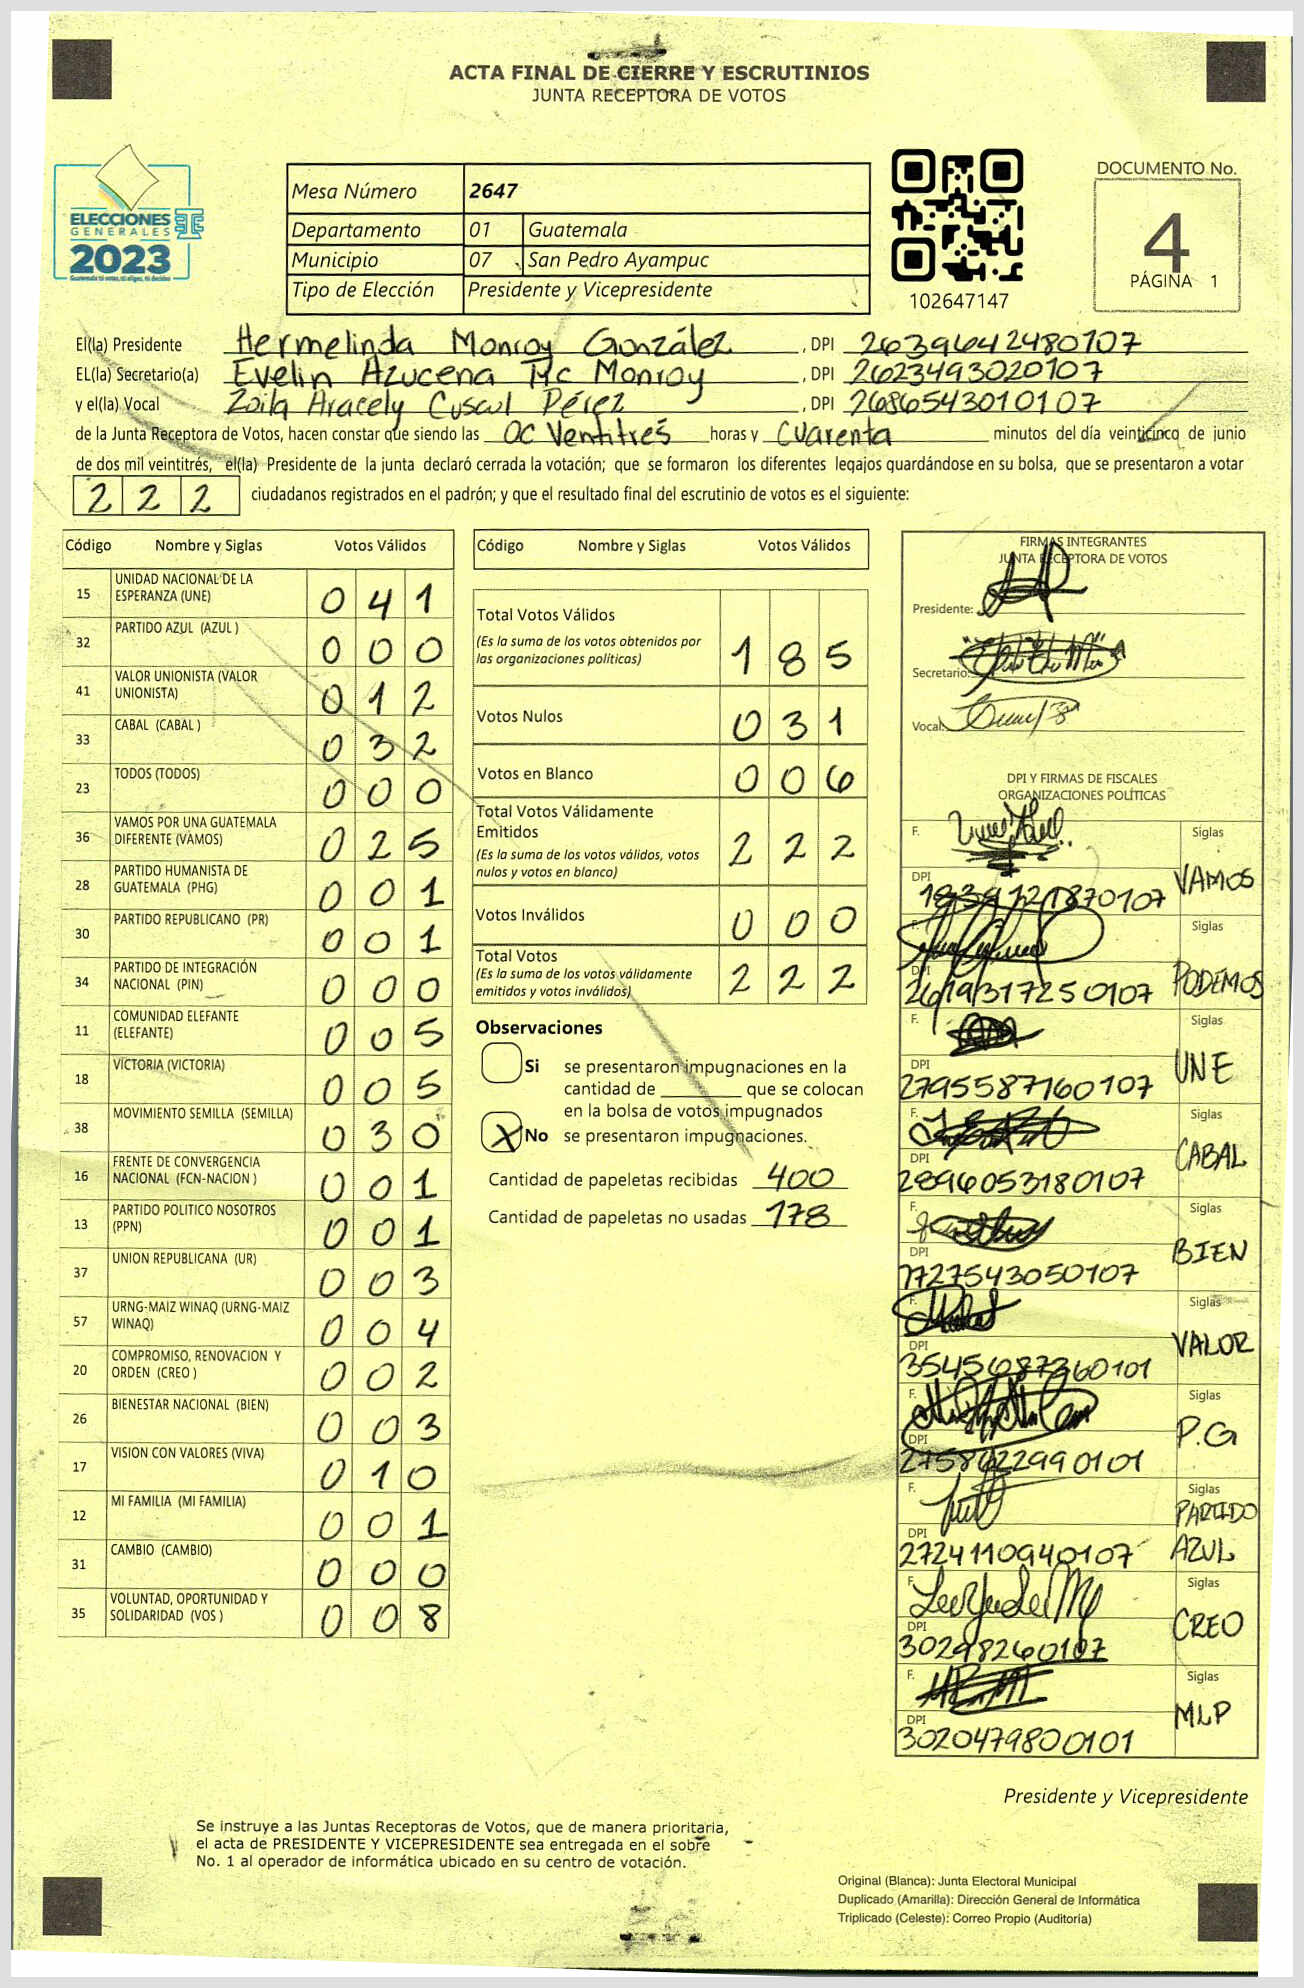 ACTA FINAL DE CIERRE Y ESCRUTINIOS
JUNTA RECEPTORA DE VOTOS
ELECCIONES
GENERALES
2023
Guatemala tú votas, tú eliges, tú decides
Mesa Número 2647
Departamento 01 Guatemala
Municipio 07 San Pedro Ayampuc
Tipo de Elección Presidente y Vicepresidente
102647147
DOCUMENTO No.
4
PÁGINA 1
El(la) Presidente Hermelinda Monroy González, DPI 2639642480107
EL(la) Secretario(a) Evelin Azucena Tic Monroy, DPI 2623493020107
y el(la) Vocal Zoila Aracely Cuscul Pérez, DPI 2686543010107
de la Junta Receptora de Votos, hacen constar que siendo las Ventitrés horas y Cuarenta minutos del día veinticinco de junio
de dos mil veintitrés, el(la) Presidente de la junta declaró cerrada la votación; que se formaron los diferentes legajos guardándose en su bolsa, que se presentaron a votar
2 2 2 ciudadanos registrados en el padrón; y que el resultado final del escrutinio de votos es el siguiente:
Código Nombre y Siglas Votos Válidos
15 UNIDAD NACIONAL DE LA ESPERANZA (UNE) 0 4 1
32 PARTIDO AZUL (AZUL ) 0 0 0
41 VALOR UNIONISTA (VALOR UNIONISTA) 0 1 2
33 CABAL (CABAL ) 0 3 2
23 TODOS (TODOS) 0 0 0
36 VAMOS POR UNA GUATEMALA DIFERENTE (VAMOS) 0 2 5
28 PARTIDO HUMANISTA DE GUATEMALA (PHG) 0 0 1
30 PARTIDO REPUBLICANO (PR) 0 0 1
34 PARTIDO DE INTEGRACIÓN NACIONAL (PIN) 0 0 0
11 COMUNIDAD ELEFANTE (ELEFANTE) 0 0 5
18 VICTORIA (VICTORIA) 0 0 5
38 MOVIMIENTO SEMILLA (SEMILLA) 0 3 0
16 FRENTE DE CONVERGENCIA NACIONAL (FCN-NACION ) 0 0 1
13 PARTIDO POLITICO NOSOTROS (PPN) 0 0 1
37 UNION REPUBLICANA (UR) 0 0 3
57 URNG-MAIZ WINAQ (URNG-MAIZ WINAQ) 0 0 4
20 COMPROMISO, RENOVACION Y ORDEN (CREO ) 0 0 2
26 BIENESTAR NACIONAL (BIEN) 0 0 3
17 VISION CON VALORES (VIVA) 0 1 0
12 MI FAMILIA (MI FAMILIA) 0 0 1
31 CAMBIO (CAMBIO) 0 0 0
35 VOLUNTAD, OPORTUNIDAD Y SOLIDARIDAD (VOS ) 0 0 8
Código Nombre y Siglas Votos Válidos
Total Votos Válidos
(Es la suma de los votos obtenidos por las organizaciones políticas) 1 8 5
Votos Nulos 0 3 1
Votos en Blanco 0 0 6
Total Votos Válidamente Emitidos
(Es la suma de los votos válidos, votos nulos y votos en blanco) 2 2 2
Votos Inválidos 0 0 0
Total Votos
(Es la suma de los votos válidamente emitidos y votos inválidos) 2 2 2
Observaciones
Si se presentaron impugnaciones en la
cantidad de ________ que se colocan
en la bolsa de votos impugnados
X No se presentaron impugnaciones.
Cantidad de papeletas recibidas 400
Cantidad de papeletas no usadas 178
FIRMAS INTEGRANTES
JUNTA RECEPTORA DE VOTOS
Presidente:
Secretario:
Vocal:
DPI Y FIRMAS DE FISCALES
ORGANIZACIONES POLÍTICAS
F. Siglas
DPI VAMOS
F. Siglas
DPI 2619317250107 PODEMOS
F. Siglas
DPI 2795587160107 UNE
F. Siglas
DPI 2896053180107 CABAL
F. Siglas
DPI 1727543050107 BIEN
F. Siglas
DPI 3545687360101 VALOR
F. Siglas
DPI 2758622990101 P.G
F. Siglas
DPI 2724110940107 PARTIDO AZUL
F. Siglas
DPI 302998260107 CREO
F. Siglas
DPI 3020479800101 MLP
Presidente y Vicepresidente
Se instruye a las Juntas Receptoras de Votos, que de manera prioritaria,
el acta de PRESIDENTE Y VICEPRESIDENTE sea entregada en el sobre
No. 1 al operador de informática ubicado en su centro de votación.
Original (Blanca): Junta Electoral Municipal
Duplicado (Amarilla): Dirección General de Informática
Triplicado (Celeste): Correo Propio (Auditoría)